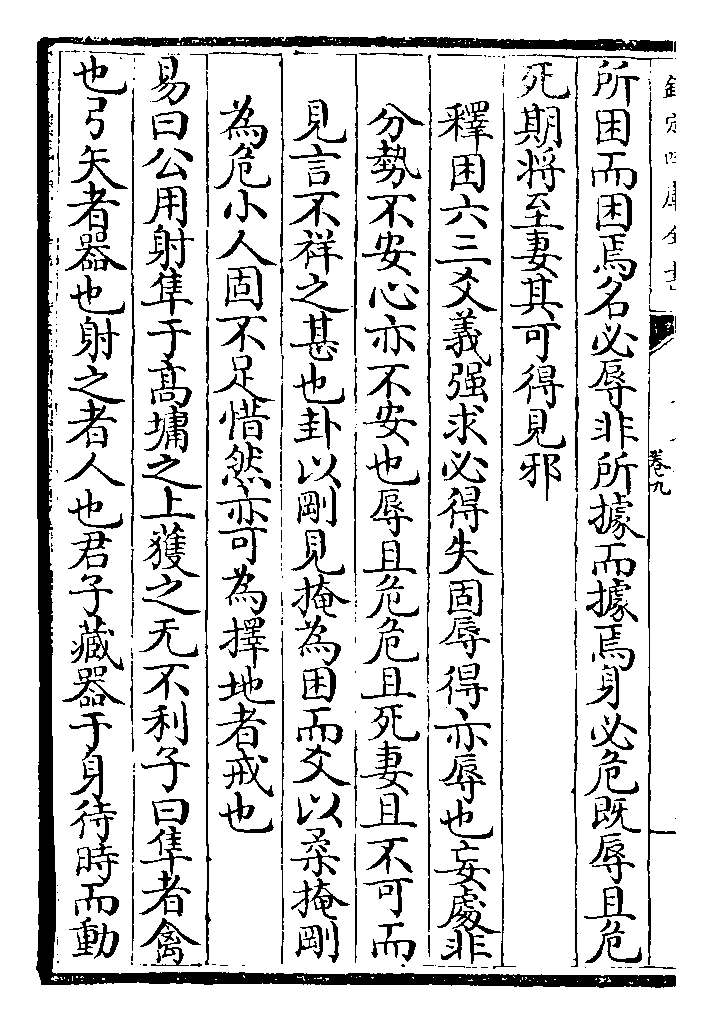 欽定四庫全書
卷九
所困而困焉名必辱非所據而據焉身必危既辱且危
死期將至妻其可得見邪
釋困六三爻義强求必得失固辱得亦辱也妄處非
分勢不安心亦不安也辱且危危且死妻且不可而
見言不祥之甚也卦以剛見掩為困而爻以柔掩剛
為危小人固不足惜然亦可為擇地者戒也
易曰公用射隼于髙墉之上獲之无不利子曰隼者禽
也弓矢者器也射之者人也君子藏器于身待時而動